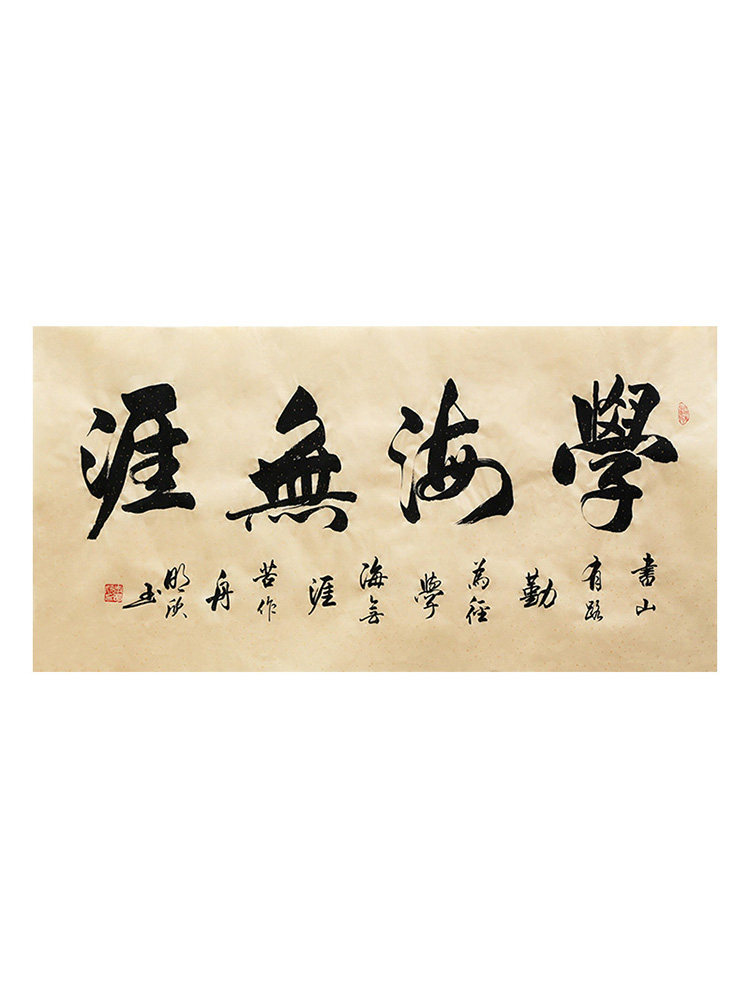 學海無涯
書山有路勤為徑學海無涯苦作舟
明